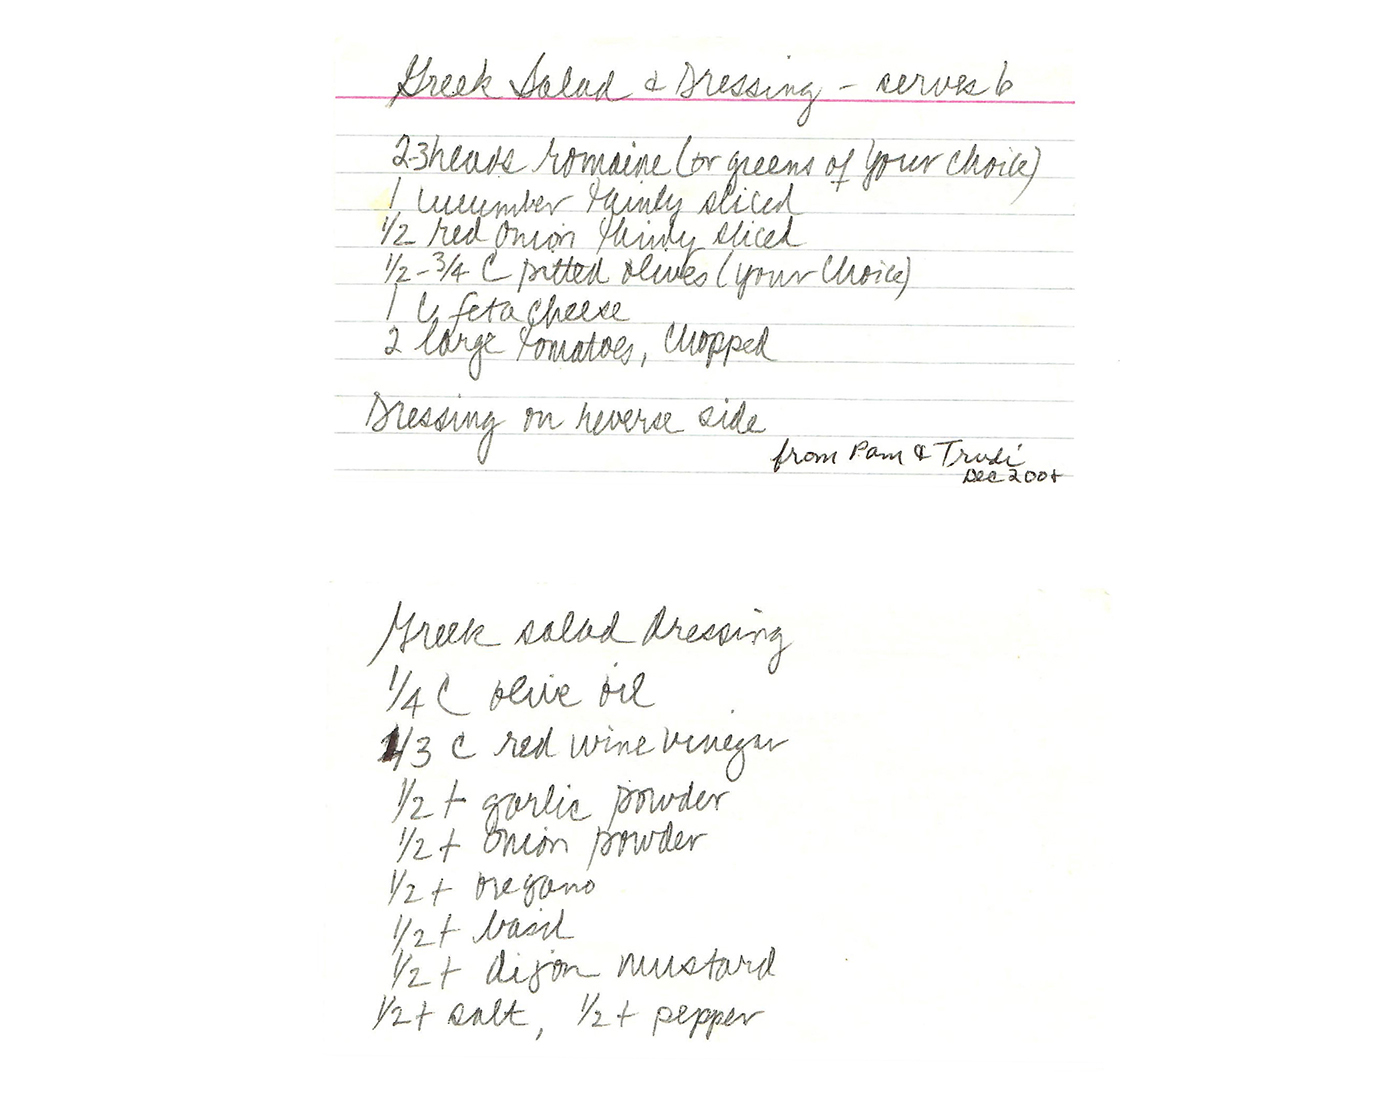 Greek Salad & Dressing - serves 6
2-3 heads romaine (or greens of your choice)
1 cucumber thinly sliced
1/2 red onion thinly sliced
1/2-3/4 C pitted olives (your choice)
1 C feta cheese
2 large tomatoes, chopped
Dressing on reverse side
from Pam & Trudi
Dec
Greek salad dressing
1/4 C olive oil
1/3 C red wine vinegar
1/2 t garlic powder
1/2 t onion powder
1/2 t oregano
1/2 t basil
1/2 t dijon mustard
1/2 t salt, 1/2 t pepper